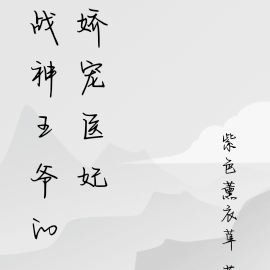 战神王爷的
娇宠医妃
紫色薰衣草